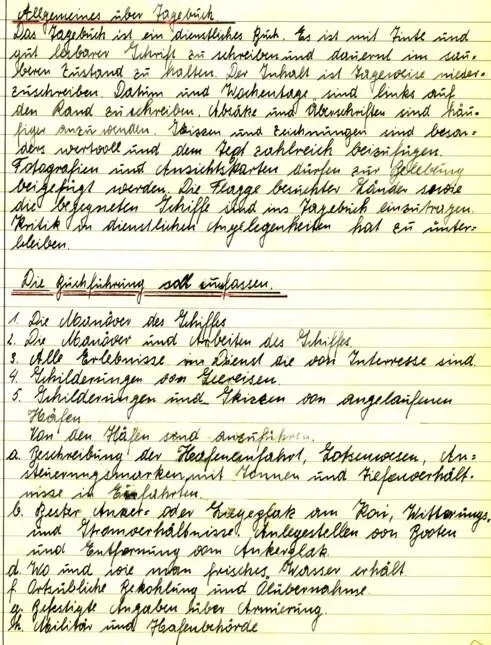 Allgemeines über Tagebuch
Das Tagebuch ist ein dienstliches Buch. Es ist mit Tinte und
gut lesbarer Schrift zu schreiben und dauernd im sau-
beren Zustand zu halten. Der Inhalt ist tageweise nieder-
zuschreiben. Datum und Wochentage sind links auf
den Rand zu schreiben. Absätze und Überschriften sind häu-
figer anzuwenden. Skizzen und Zeichnungen sind beson-
ders wertvoll und dem Text zahlreich beizufügen.
Fotografien und Ansichtskarten dürfen zur Belebung
beigefügt werden. Die Flagge besuchter Länder sowie
die begegneten Schiffe sind ins Tagebuch einzutragen.
Kritik in dienstlichen Angelegenheiten hat zu unter-
bleiben.
Die Buchführung soll umfassen.
1. Die Manöver des Schiffes
2. Die Manöver und Arbeiten des Schiffes
3. Alle Erlebnisse im Dienst die von Interresse sind
4. Schilderungen von Seereisen.
5. Schilderungen und Skizzen von angelaufenen
Häfen
Von den Häfen sind anzuführen.
a. Beschreibung der Hafeneinfahrt, Lotsenwesen, An-
steuerungsmarken, mit Tonnen und Tiefenverhält-
nisse in Einfahrten.
b. Bester Anker- oder Liegeplatz am Kai, Witterungs-
und Stromverhältnisse. Anlegestellen von Booten
und Entfernung vom Ankerplatz
d. Wo und wie man frisches Wasser erhält
f. Ortsübliche Bekohlung und Ölübernahme
g. Befestigte Angaben über Armierung.
h. Militär und Hafenbehörde